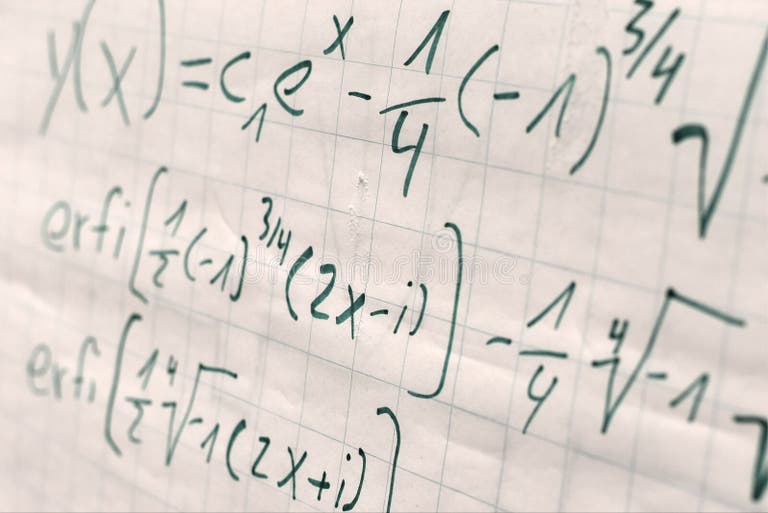 y(x) = c₁eˣ - 1/4 (-1)^3/4 √
erfi[1/2 (-1)^3/4 (2x-i)] - 1/4 ∜-1 √
erfi[1/2 ∜-1 (2x+i)]